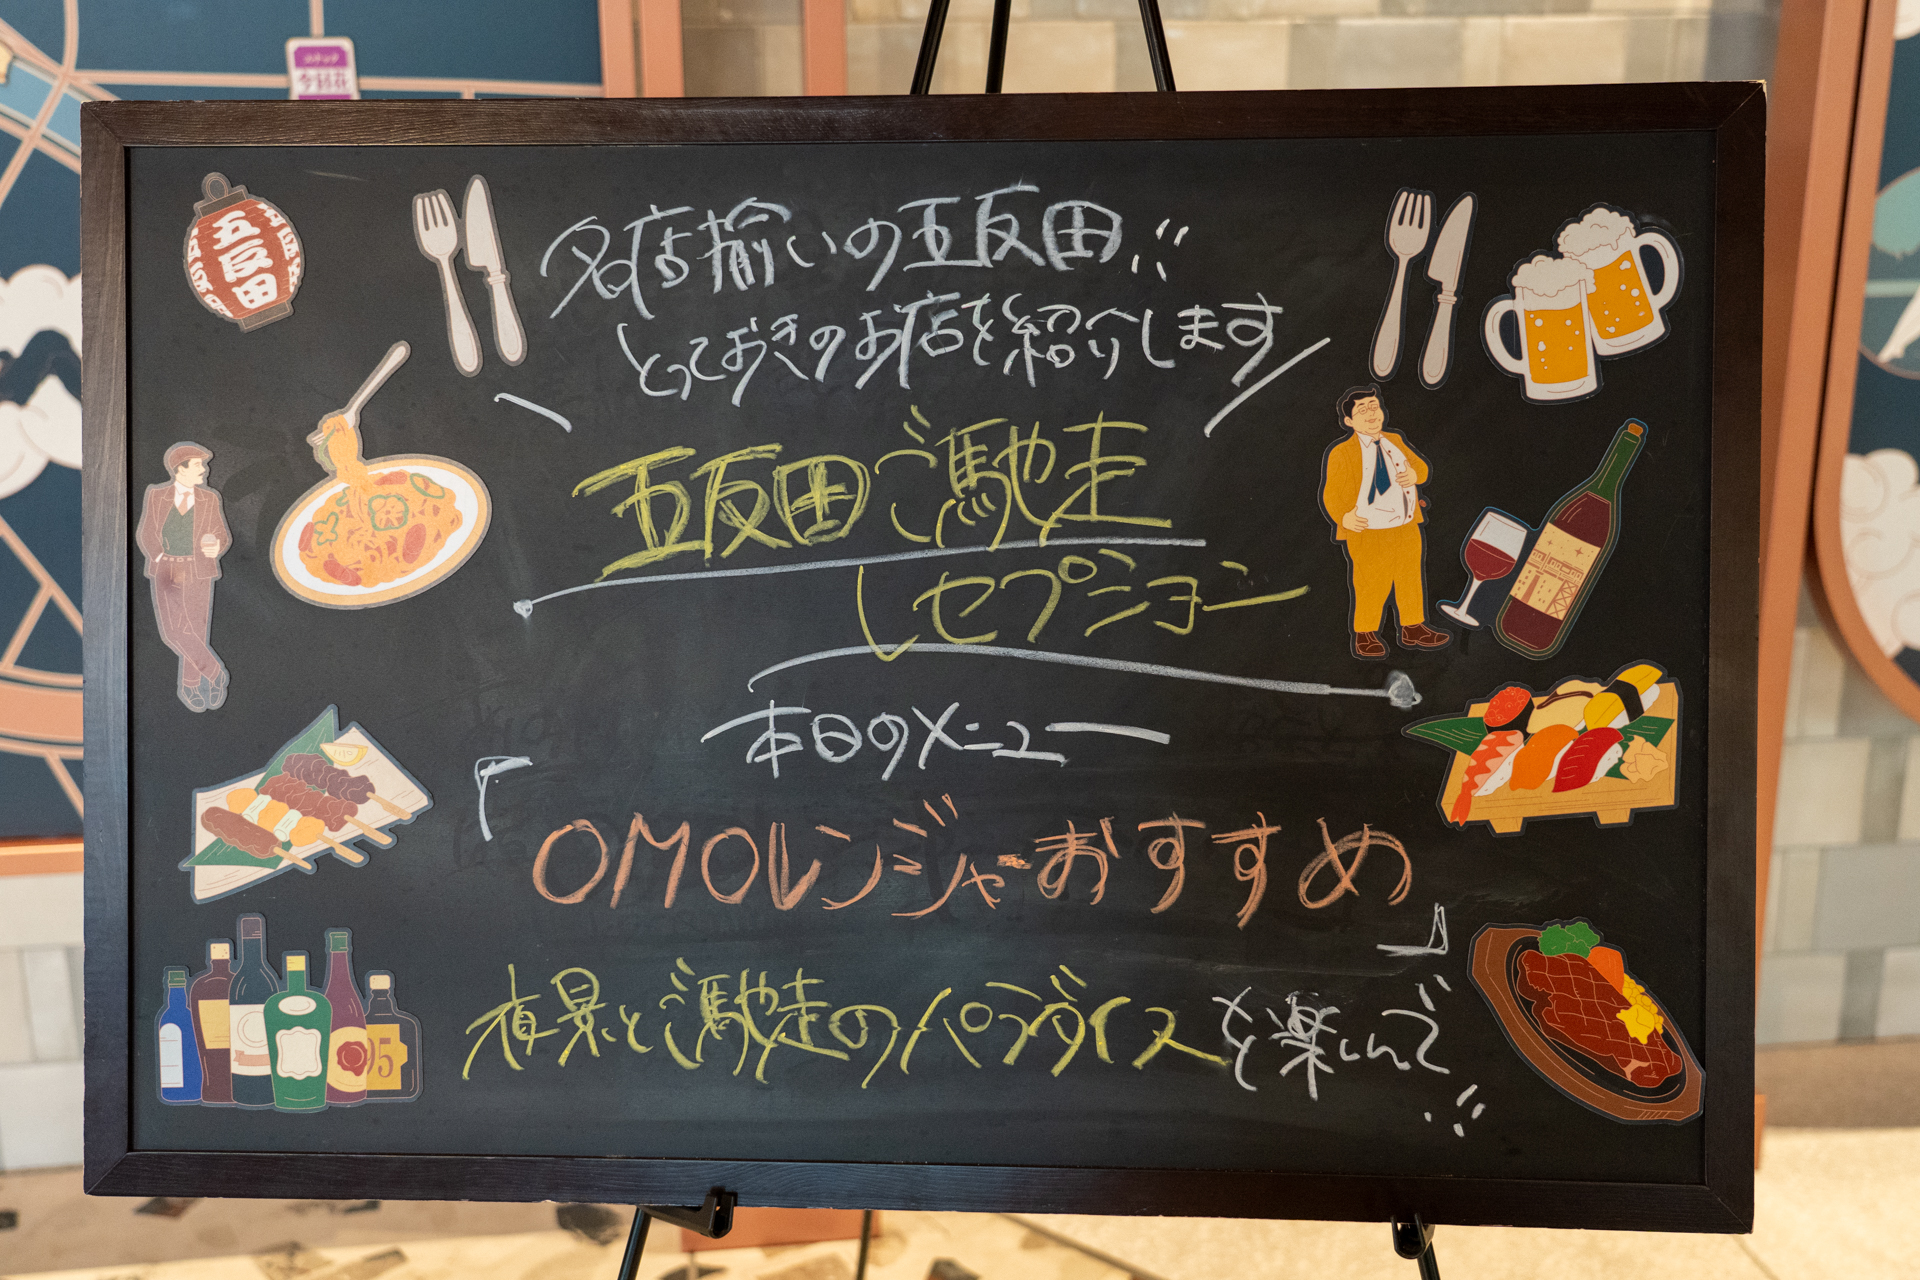 五反田
名店揃いの五反田!!
とっておきのお店を紹介します
五反田ご馳走
レセプション
本日のメニュー
「OMOレンジャーおすすめ」
夜景とご馳走のパラダイスを楽しんで!!
95